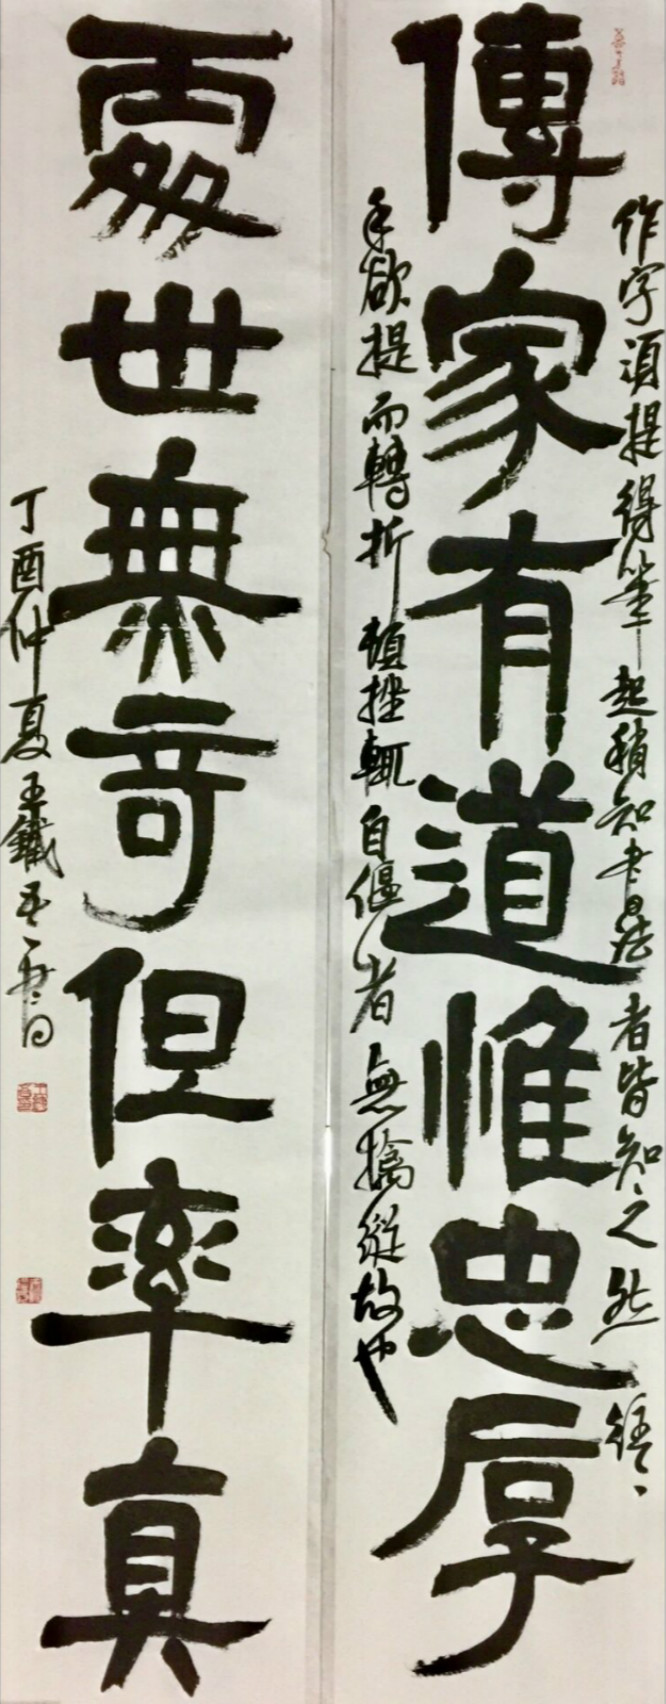 傳家有道惟忠厚
作字須提得筆起稍知書法者皆知之然往〻
手欲提而轉折頓挫輒自偃者無擒縱故也
處世無奇但率真
丁酉仲夏王鐵